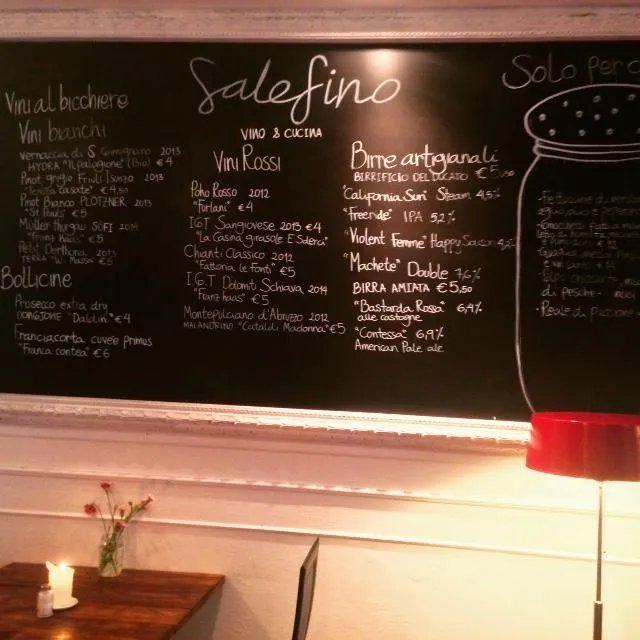 Salefino
VINO & CUCINA
Vini al bicchiere
Vini bianchi
Vernaccia di S. Gimignano 2013
HYDRA "Il palagione" (Bio) €4
Pinot grigio Friuli Isonzo 2013
"Tenuta casate" €4,50
Pinot Bianco PLOTZNER 2013
"St Pauls" €5
Müller thurgau SOFI 2014
"Franz haas" €5
Petit
TERRA €5
Bollicine
Prosecco extra dry
"Daldin" €4
Franciacorta cuveé primus
"Franca contea" €6
Vini Rossi
Poho Rosso 2012
"Furlani" €4
IGT Sangiovese 2013 €4
"La Casina girasole E Solera"
Chianti Classico 2012
"Fattoria le fonti" €5
I.G.T Dolomiti Schiava 2014
"Franz haas" €5
Montepulciano d'Abruzzo 2012
MALANDRINO "Cataldi Madonna" €5
Birre artigianali
BIRRIFICIO DEL DUCATO €5,50
"California Sun" Steam 4,5%
"Freende" IPA 5,2%
"Violent Femme" Happy Saison 4,2%
"Machete" Double 7,6%
BIRRA AMIATA €5,50
"Bastarda Rossa" 6,4%
alle castagne
"Contessa" 6,9%
American Pale ale
Solo per
di pesche